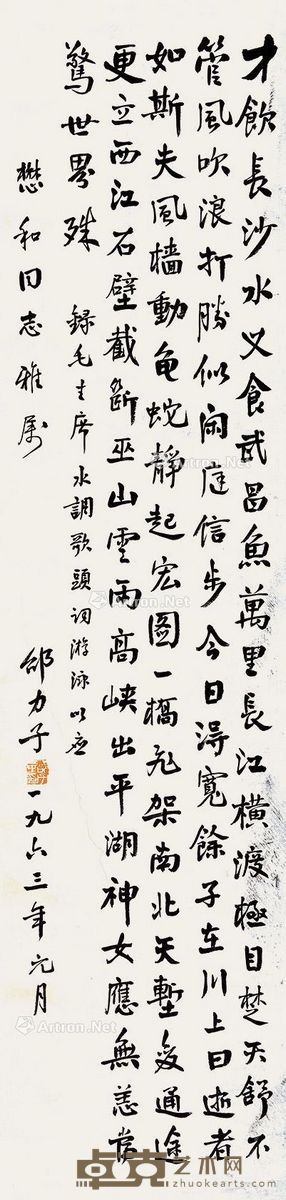 才飲長沙水又食武昌魚萬里長江橫渡極目楚天舒不
管風吹浪打勝似閑庭信步今日得寬餘子在川上曰逝者
如斯夫風檣動龜蛇靜起宏圖一橋飛架南北天塹變通途
更立西江石壁截斷巫山雲雨高峽出平湖神女應無恙當
驚世界殊 錄毛主席水調歌頭詞游泳以應
懋和同志雅屬
邵力子 一九六三年元月
Artron.Net
Artron.Net
Artron.Net
Artron.Net
卓克艺术网
www.zhuokearts.com